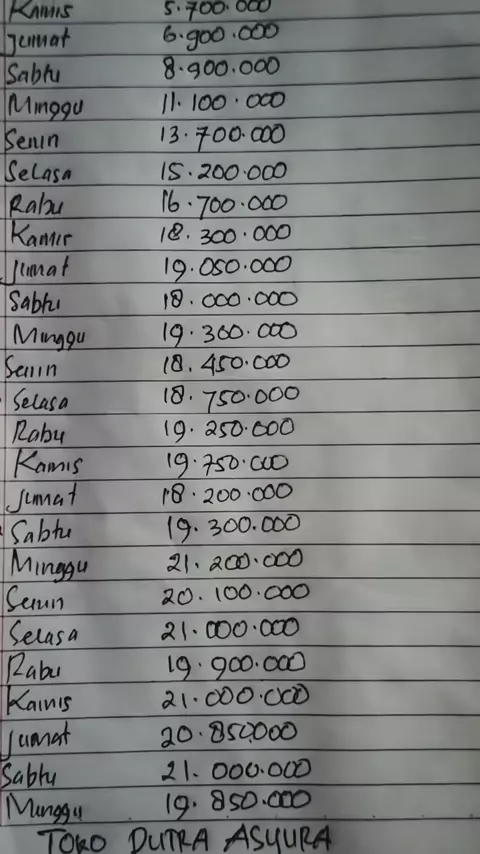 Kamis 5.700.000
Jumat 6.900.000
Sabtu 8.900.000
Minggu 11.100.000
Senin 13.700.000
Selasa 15.200.000
Rabu 16.700.000
Kamis 18.300.000
Jumat 19.050.000
Sabtu 18.000.000
Minggu 19.300.000
Senin 18.450.000
Selasa 18.750.000
Rabu 19.250.000
Kamis 19.750.000
Jumat 18.200.000
Sabtu 19.300.000
Minggu 21.200.000
Senin 20.100.000
Selasa 21.000.000
Rabu 19.900.000
Kamis 21.000.000
Jumat 20.850.000
Sabtu 21.000.000
Minggu 19.850.000
TOKO PUTRA ASYURA